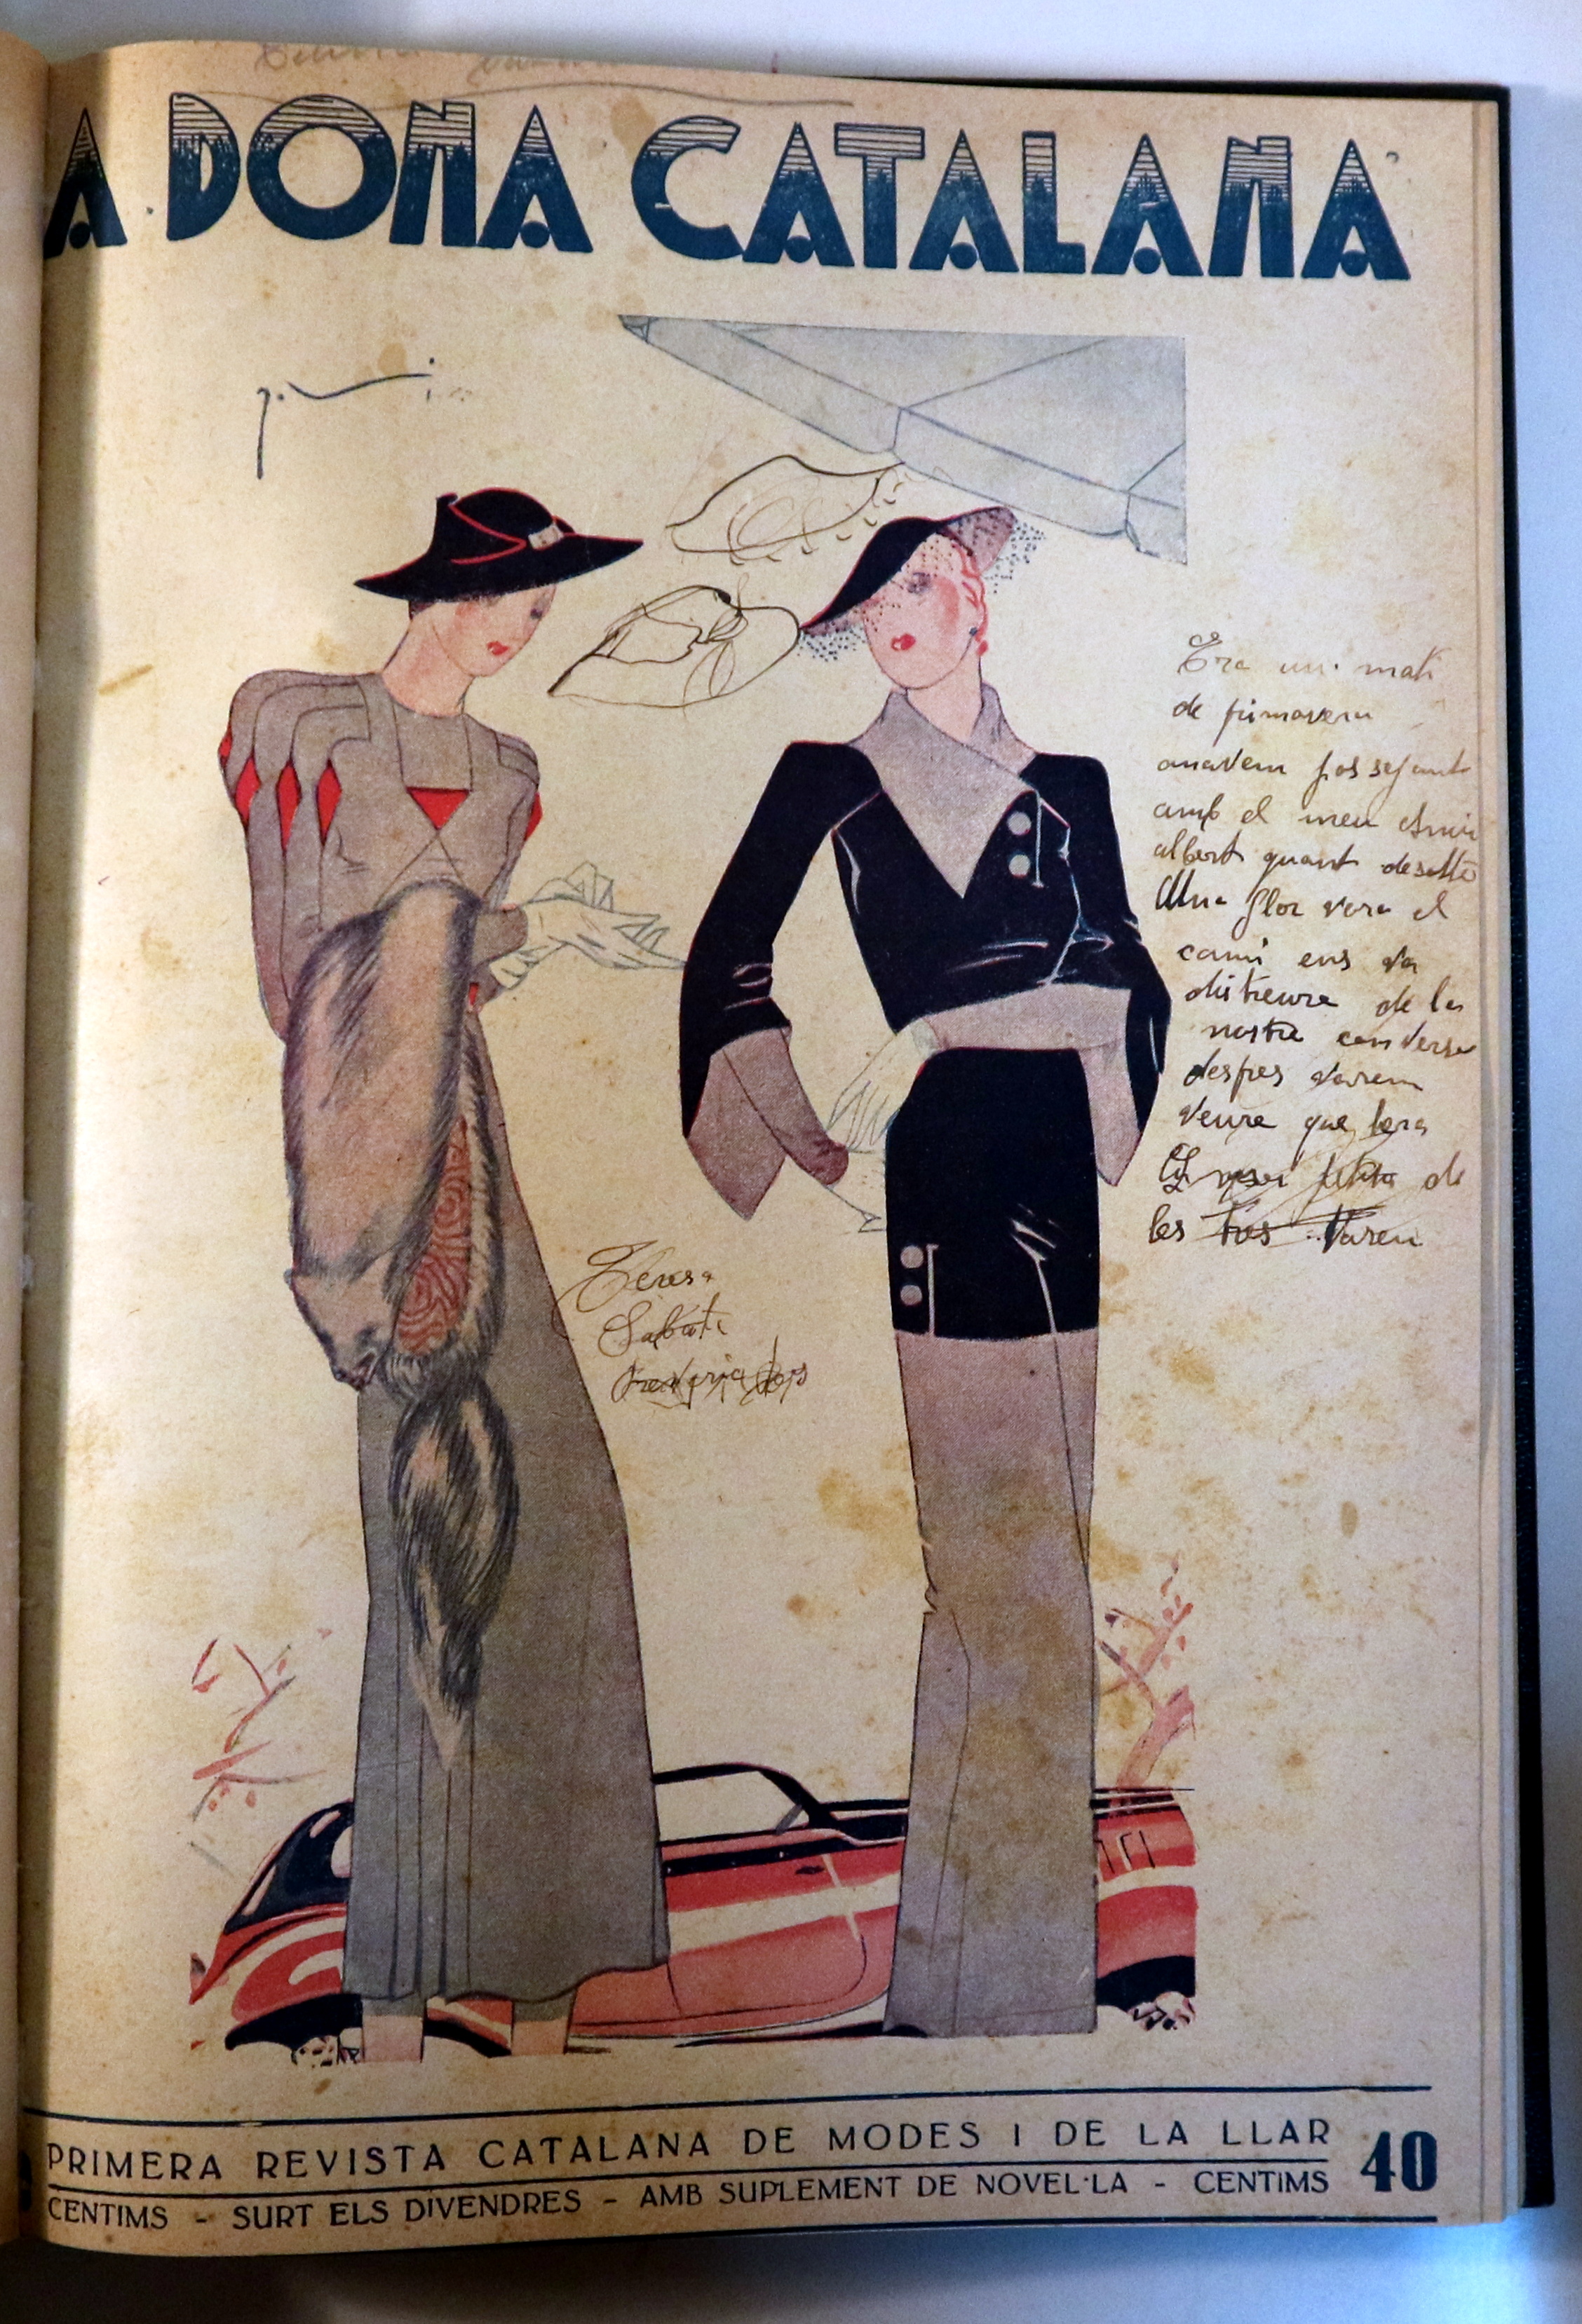 A DONA CATALANA
Era un mati
de primavera
anavem passejant
amb el meu
albert quant desotte
Una flor vora el
cami ens va
distreure de la
nostra conversa
despres varem
veure que hera
de
les tres Varem
Teresa
Sabati
PRIMERA REVISTA CATALANA DE MODES I DE LA LLAR
CENTIMS - SURT ELS DIVENDRES - AMB SUPLEMENT DE NOVEL·LA - CENTIMS
40